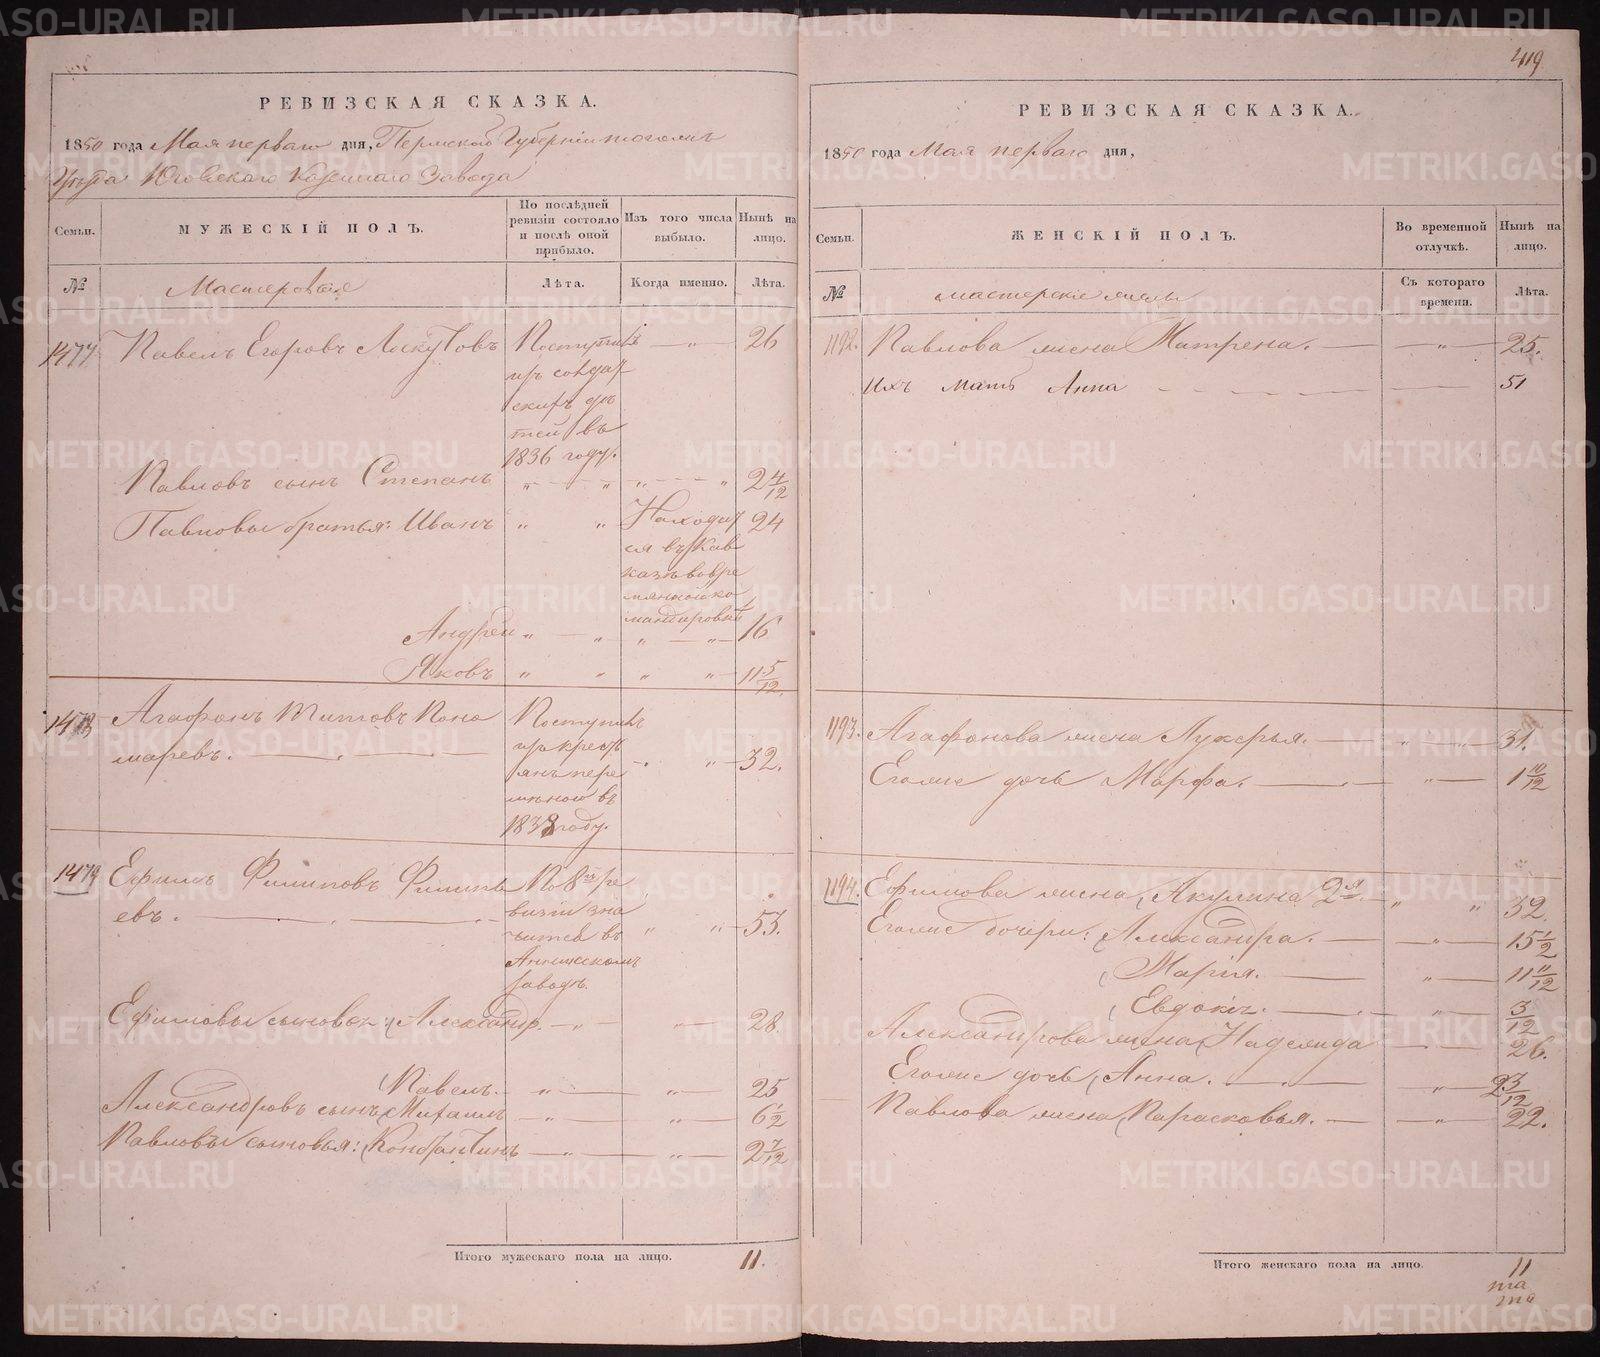 419
РЕВИЗСКАЯ СКАЗКА.
1850 года Мая перваго дня, Пермской Губернiи тогожъ
Уѣзда Юговскаго Казеннаго Завода
Семьи.
МУЖЕСКIЙ ПОЛЪ.
По послѣдней ревизiи состояло и послѣ оной прибыло.
Изъ того числа выбыло.
Нынѣ на лицо.
№
Мастеровые
Лѣта.
Когда именно.
Лѣта.
1477 Павелъ Егоровъ Поступилъ — „ — 26
изъ солдат
скихъ дѣ
тей въ
1836 году.
Павловъ сынъ Степанъ „ — „ „ — „ 2 4/12
Павловы братья: Иванъ „ „ Находит 24
ся въ Кав
казѣ во вре
мянной ко
мандировкѣ
Андрей „ — „ „ — „ 16
Яковъ „ „ „ „ 11 5/12.
1478 Агафонъ Титовъ Поно Поступилъ
маревъ. изъ крестъ — „ 32.
янъ пере
мѣною въ
1838 году.
1479 Ефимъ Филиповъ Филипь По 8й ре
евъ. визiи зна „ „ 53.
чится въ
Аннинскомъ
заводѣ.
Ефимовы сыновья: Александр. — „ — „ — 28.
Павелъ. — „ — „ — 25
Александровъ сынъ Михаилъ — „ — „ — 6 1/2
Павловы сыновья: Константинъ — „ — „ — 2 7/12
Итого мужескаго пола на лицо. 11.
РЕВИЗСКАЯ СКАЗКА.
1850 года Мая перваго дня,
Семьи.
ЖЕНСКIЙ ПОЛЪ.
Во временной отлучкѣ.
Нынѣ на лицо.
№
мастерскiе жены
Съ котораго времени.
Лѣта.
1192. Павлова жена Матрена. — „ — 25.
Ихъ мать Анна — 51
1193. Агафонова жена Лукерья. — „ — 31.
Егоже дочь Марфа. — „ — 1 10/12
1194. Ефимова жена Акулина 2я — „ „ 32.
Егоже дочери: Александра. — „ — 15 1/2
Марiя. — „ — 11 11/12
Евдокiя. — „ — 3/12
Александрова жена Надежда — 26.
Егоже дочь Анна. — „ — 2 3/12
Павлова жена Парасковья. — „ — 22.
Итого женскаго пола на лицо. 11
METRIKI.GASO-URAL.RU